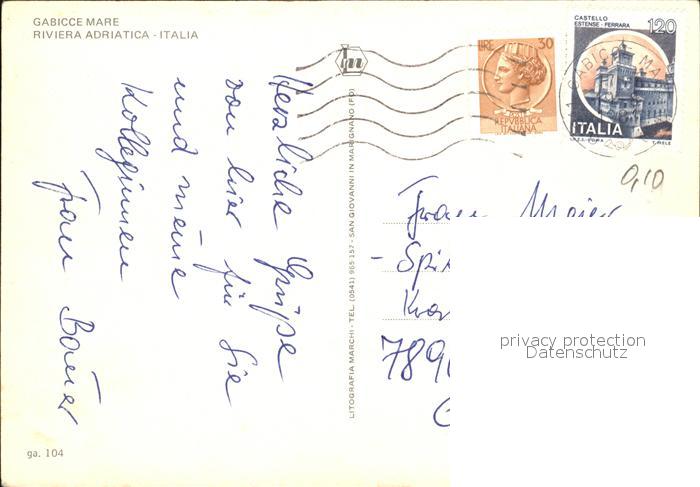 GABICCE MARE
RIVIERA ADRIATICA - ITALIA
Herzliche Grüße
von hier für Sie
und meine
Kolleginnen
Frau Bauer
LITOGRAFIA MARCHI - TEL. (0541) 965157 - SAN GIOVANNI IN MARIGNANO (FO)
LIRE 30
REPVBBLICA
ITALIANA
CASTELLO
ESTENSE - FERRARA
120
ITALIA
I.P.Z.S. - ROMA
GABICCE MA
0,10
Frau Maier
Spi
789
privacy protection
Datenschutz
ga. 104